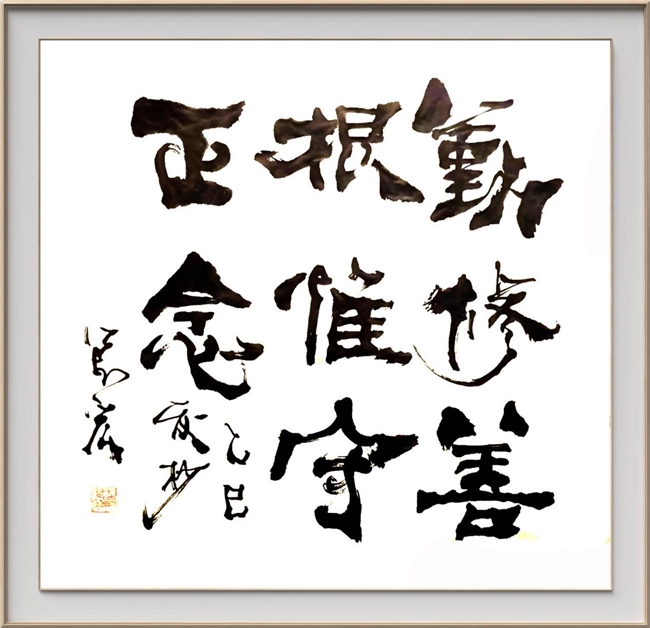 勤修善
根惟守
正念
乙巳
夜抄